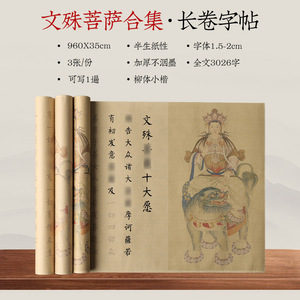 文殊菩萨合集·长卷字帖
•960X35cm
•半生纸性
•字体1.5-2cm
•3张/份
•加厚不洇墨
•全文3026字
•可写1遍
•柳体小楷
文殊十大愿
告大众诸大摩诃薩若
有初发意及